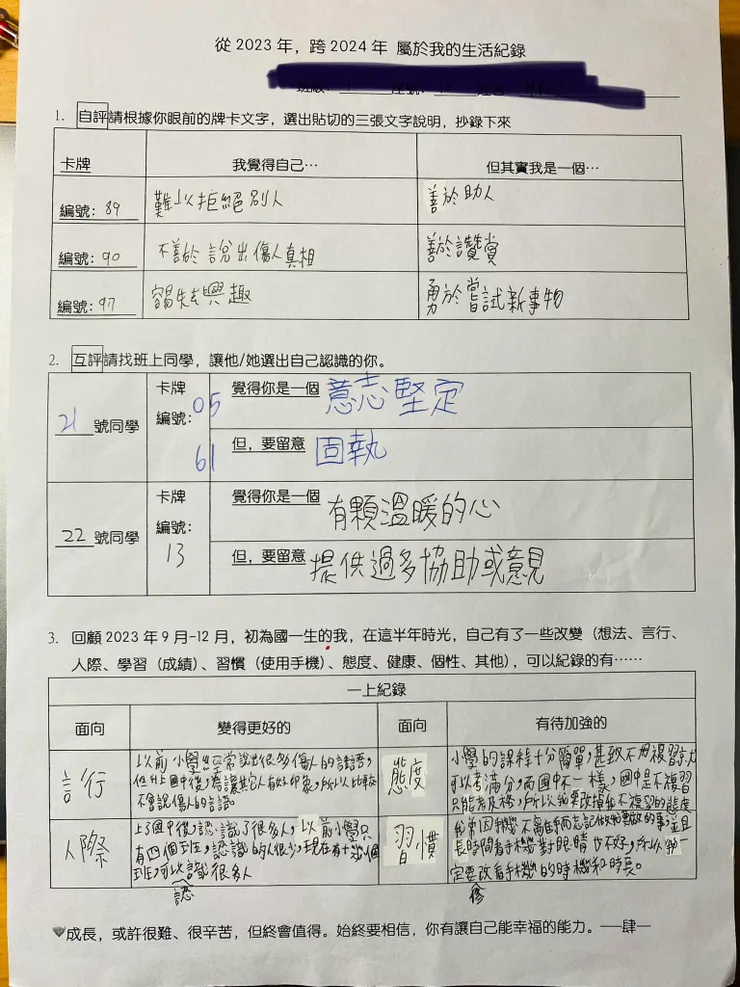 從 2023 年，跨 2024 年 屬於我的生活紀錄
1. 自評請根據你眼前的牌卡文字，選出貼切的三張文字說明，抄錄下來
卡牌 我覺得自己… 但其實我是一個…
編號：89 難以拒絕別人 善於助人
編號：90 不善於說出傷人真相 善於讚賞
編號：97 容易失去興趣 勇於嘗試新事物
2. 互評請找班上同學，讓他/她選出自己認識的你。
21 號同學 卡牌編號：05 覺得你是一個 意志堅定
61 但，要留意 固執
22 號同學 卡牌編號：13 覺得你是一個 有顆溫暖的心
但，要留意 提供過多協助或意見
3. 回顧 2023 年 9 月-12 月，初為國一生的我，在這半年時光，自己有了一些改變（想法、言行、
人際、學習（成績）、習慣（使用手機）、態度、健康、個性、其他），可以紀錄的有……
一上紀錄
面向 變得更好的 面向 有待加強的
言行
以前小學經常說出很多傷人的話語，
但升上國中後，為讓其它人有好印象，所以比較
不會說傷人的言語。
態度
小學的課程十分簡單，甚致不用複習就
可以考滿分，而國中不一樣，國中是不複習
只能考及格，所以我要改掉不複習的態度
人際
上了國中後，認識了很多人，以前小學只
有四個班，認識的人很少，現在有十幾個
班，可以認識很多人
認
習慣
我常因手機不離手而忘記做我應做的事，並且
長時間看手機對眼睛也不好，所以我一
定要改看手機的時機和時長。
修
成長，或許很難、很辛苦，但終會值得。始終要相信，你有讓自己能幸福的能力。──肆一